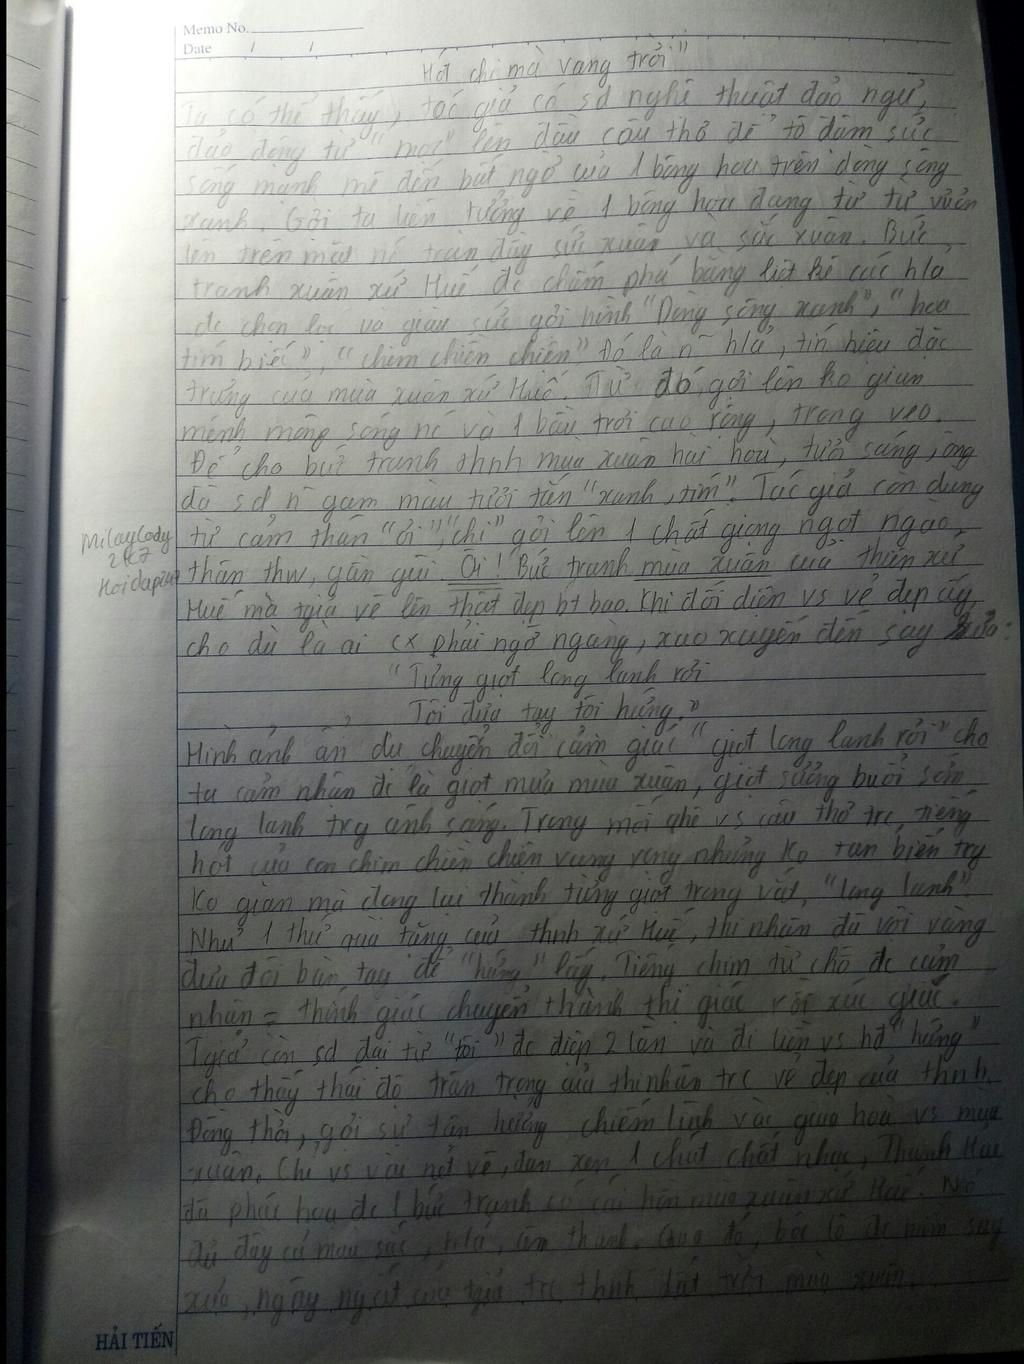 Memo No.
Date / /
Hót chi mà vang trời"
Ta có thể thấy, tác giả có sd nghệ thuật đảo ngữ,
đảo động từ "mọc" lên đầu câu thơ để tô đậm sức
sống mạnh mẽ đến bất ngờ của 1 bông hoa trên dòng sông
xanh. Gởi ta liên tưởng về 1 bông hoa đang từ từ vươn
lên trên mặt nc tràn đầy sức xuân và sắc xuân. Bức
tranh xuân xứ Huế đc chấm phá bằng liệt kê các h/ả
đc chọn lọc và giàu sức gởi hình "Dòng sông xanh", "hoa
tím biếc", "chim chiền chiện" Đó là n~ h/ả, tín hiệu đặc
trưng của mùa xuân xứ Huế. Từ đó, gởi lên ko gian
mênh mông sông nc và 1 bầu trời cao rộng, trong veo.
Để cho bức tranh thnh mùa xuân hài hoà, tươi sáng, ông
đã sd n~ gam màu tươi tắn "xanh, tím". Tác giả còn dùng
từ cảm thán "ơi", "chi" gởi lên 1 chất giọng ngọt ngào,
thân thw, gần gũi. Ôi! Bức tranh mùa xuân của thiên xứ
Huế mà tgiả vẽ lên thật đẹp bt bao. Khi đối diện vs vẻ đẹp ấy
cho dù là ai cx phải ngỡ ngàng, xao xuyến đến say xưa:
"Từng giọt long lanh rơi
Tôi đưa tay tôi hứng."
Hình ảnh ẩn dụ chuyển đổi cảm giác "giọt long lanh rơi" cho
ta cảm nhận đc là giọt mưa mùa xuân, giọt sương buổi sớm
long lanh trg ánh sáng. Trong mối qhê vs câu thơ trc, tiếng
hót của con chim chiền chiện vang vọng nhưng ko tan biến trg
ko gian mà đọng lại thành từng giọt trong vắt, "long lanh".
Như 1 thứ quà tặng của thnh xứ Huế, thi nhân đã vội vàng
đưa đôi bàn tay để "hứng" lấy. Tiếng chim từ chỗ đc cảm
nhận = thính giác chuyển thành thị giác rồi xúc giác.
Tgiả còn sd đại từ "tôi" đc điệp 2 lần và đi liền vs hđ "hứng"
cho thấy thái độ trân trọng của thi nhân trc vẻ đẹp của thnh.
Đồng thời, gởi sự tận hưởng chiếm lĩnh và giao hoà vs mùa
xuân. Chỉ vs vài nét vẽ, đan xen 1 chút chất nhạc, Thanh Hải
đã phác hoạ đc 1 bức tranh có cái hồn mùa xuân xứ Huế. Nó
đủ đầy cả màu sắc, h/ả, âm thanh. Qua đó, bộc lộ đc niềm say
xưa, ngây ngất của tgiả trc thnh đất trời mùa xuân.
MilayCady
2k7
Hoidap247
HẢI TIẾN